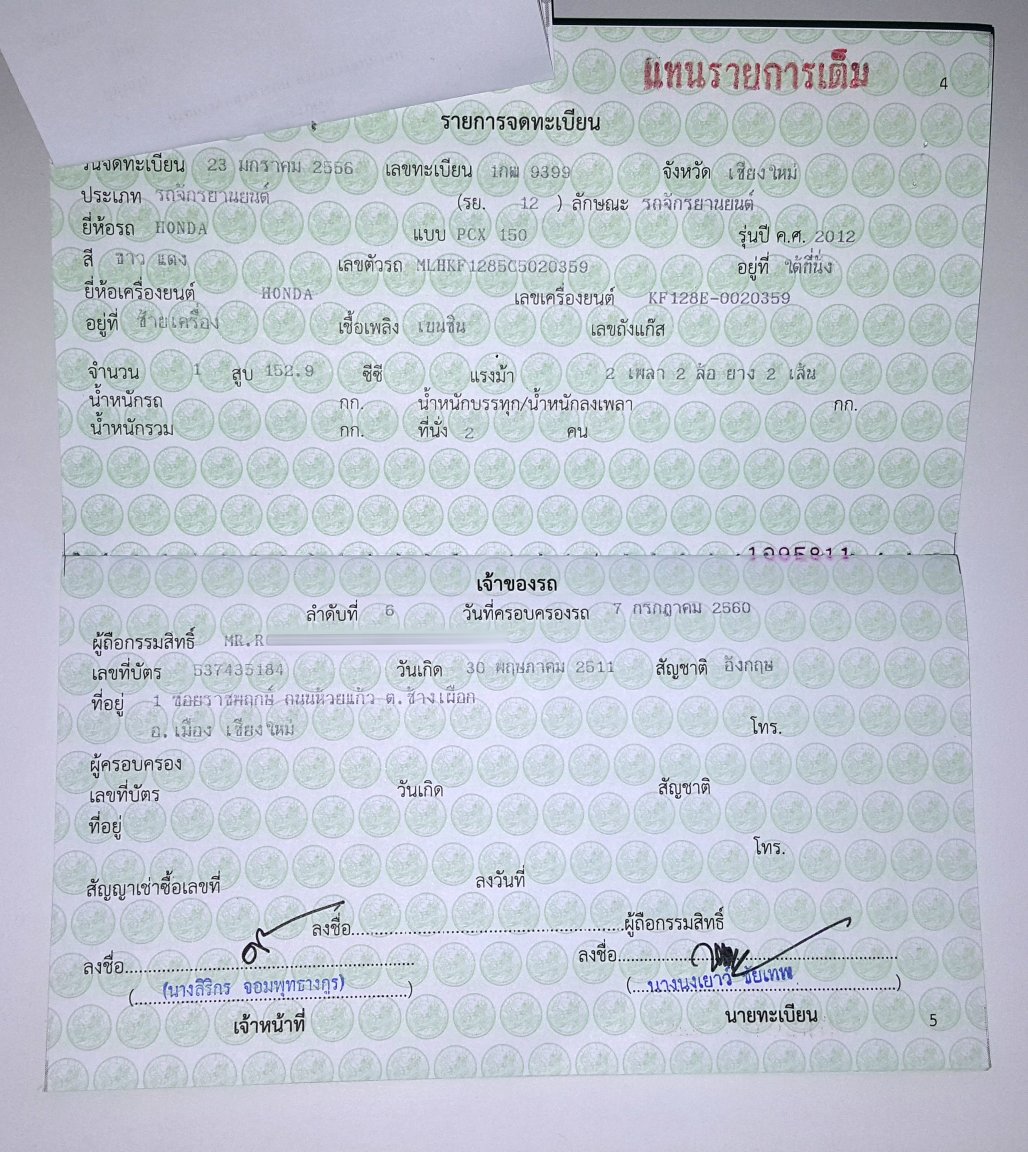 แทนรายการเดิม
4
รายการจดทะเบียน
วันจดทะเบียน 23 มกราคม 2556 เลขทะเบียน 1กผ 9399 จังหวัด เชียงใหม่
ประเภท รถจักรยานยนต์ (รย. 12 ) ลักษณะ รถจักรยานยนต์
ยี่ห้อรถ HONDA แบบ PCX 150 รุ่นปี ค.ศ. 2012
สี ขาว แดง เลขตัวรถ MLHKF1285C5020359 อยู่ที่ ใต้ที่นั่ง
ยี่ห้อเครื่องยนต์ HONDA เลขเครื่องยนต์ KF128E-0020359
อยู่ที่ ซ้ายเครื่อง เชื้อเพลิง เบนซิน เลขถังแก๊ส
จำนวน 1 สูบ 152.9 ซีซี แรงม้า 2 เพลา 2 ล้อ ยาง 2 เส้น
น้ำหนักรถ กก. น้ำหนักบรรทุก/น้ำหนักลงเพลา กก.
น้ำหนักรวม กก. ที่นั่ง 2 คน
เจ้าของรถ
ลำดับที่ 6 วันที่ครอบครองรถ 7 กรกฎาคม 2560
ผู้ถือกรรมสิทธิ์ MR.R
เลขที่บัตร 537435184 วันเกิด 30 พฤษภาคม 2511 สัญชาติ อังกฤษ
ที่อยู่ 1 ซอยราชพฤกษ์ ถนนห้วยแก้ว ต.ช้างเผือก
อ.เมือง เชียงใหม่ โทร.
ผู้ครอบครอง
เลขที่บัตร วันเกิด สัญชาติ
ที่อยู่
โทร.
สัญญาเช่าซื้อเลขที่ ลงวันที่
ลงชื่อ ผู้ถือกรรมสิทธิ์
ลงชื่อ ลงชื่อ
(นางสิริกร จอมพุทธางกูร) (นางนงเยาว์ ชัยเทพ)
เจ้าหน้าที่ นายทะเบียน
5